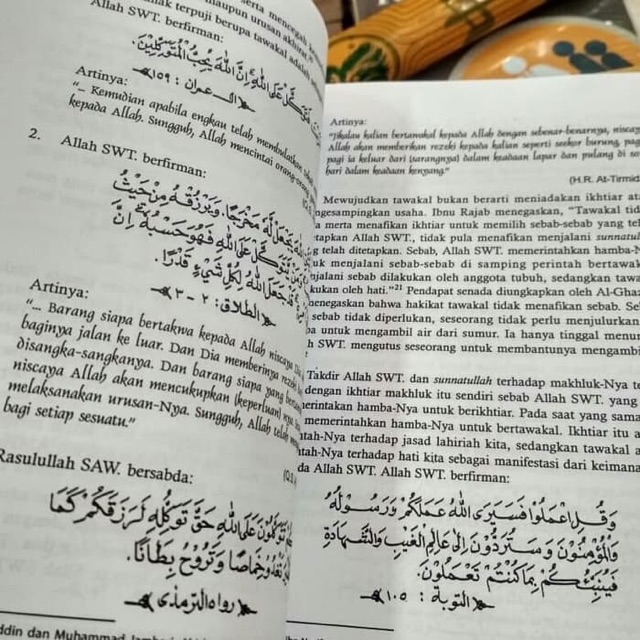 serta mencegah
maupun urusan akhirat."
terpuji berupa tawakal adalah
Allah SWT. berfirman:
فَتَوَكَّلْ عَلَى اللهِ إِنَّ اللهَ يُحِبُّ الْمُتَوَكِّلِينَ.
آل عمران : ١٥٩
Artinya:
"... Kemudian apabila engkau telah membulatkan
kepada Allah. Sungguh, Allah mencintai orang
2. Allah SWT. berfirman:
يَجْعَلْ لَهُ مَخْرَجًا. وَيَرْزُقْهُ مِنْ حَيْثُ
يَتَوَكَّلْ عَلَى اللهِ فَهُوَ حَسْبُهُ إِنَّ
قَدْ جَعَلَ اللهُ لِكُلِّ شَيْءٍ قَدْرًا.
الطلاق : ٢ - ٣
Artinya:
"... Barang siapa bertakwa kepada Allah niscaya
baginya jalan ke luar. Dan Dia memberinya rezeki
disangka-sangkanya. Dan barang siapa yang
niscaya Allah akan mencukupkan (keperluan)nya.
melaksanakan urusan-Nya. Sungguh, Allah telah
bagi setiap sesuatu."
Rasulullah SAW. bersabda:
تَوَكَّلُونَ عَلَى اللهِ حَقَّ تَوَكُّلِهِ لَرَزَقَكُمْ كَمَا
تَغْدُو خِمَاصًا وَتَرُوحُ بِطَانًا.
رواه الترمذى
dan Muhammad
Artinya:
"Jikalau kalian bertawakal kepada Allah dengan sebenar-benarnya, niscaya
Allah akan memberikan rezeki kepada kalian seperti seekor burung, pagi
pagi ia keluar dari (sarangnya) dalam keadaan lapar dan pulang di
hari dalam keadaan kenyang."
(H.R. At-Tirmid
Mewujudkan tawakal bukan berarti meniadakan ikhtiar ata
ngesampingkan usaha. Ibnu Rajab menegaskan, "Tawakal tid
merta menafikan ikhtiar untuk memilih sebab-sebab yang te
etapkan Allah SWT., tidak pula menafikan menjalani sunnatul
g telah ditetapkan. Sebab, Allah SWT. memerintahkan hamba-N
uk menjalani sebab-sebab di samping perintah bertawak
njalani sebab dilakukan oleh anggota tubuh, sedangkan tawa
kukan oleh hati."²¹ Pendapat senada diungkapkan oleh Al-Gha
menegaskan bahwa hakikat tawakal tidak menafikan sebab. Se
sebab tidak diperlukan, seseorang tidak perlu menjulurkan
a untuk mengambil air dari sumur. Ia hanya tinggal menun
h SWT. mengutus seseorang untuk membantunya mengambi
Takdir Allah SWT. dan sunnatullah terhadap makhluk-Nya t
dengan ikhtiar makhluk itu sendiri sebab Allah SWT. yang
erintakan hamba-Nya untuk berikhtiar. Pada saat yang sama
memerintahkan hamba-Nya untuk bertawakal. Ikhtiar itu a
ntah-Nya terhadap jasad lahiriah kita, sedangkan tawakal a
tah-Nya terhadap hati kita sebagai manifestasi dari keimana
da Allah SWT. Allah SWT. berfirman:
وَقُلِ اعْمَلُوا فَسَيَرَى اللهُ عَمَلَكُمْ وَرَسُولُهُ
وَالْمُؤْمِنُونَ وَسَتُرَدُّونَ إِلَى عَالِمِ الْغَيْبِ وَالشَّهَادَةِ
فَيُنَبِّئُكُمْ بِمَا كُنْتُمْ تَعْمَلُونَ.
التوبة : ١٠٥